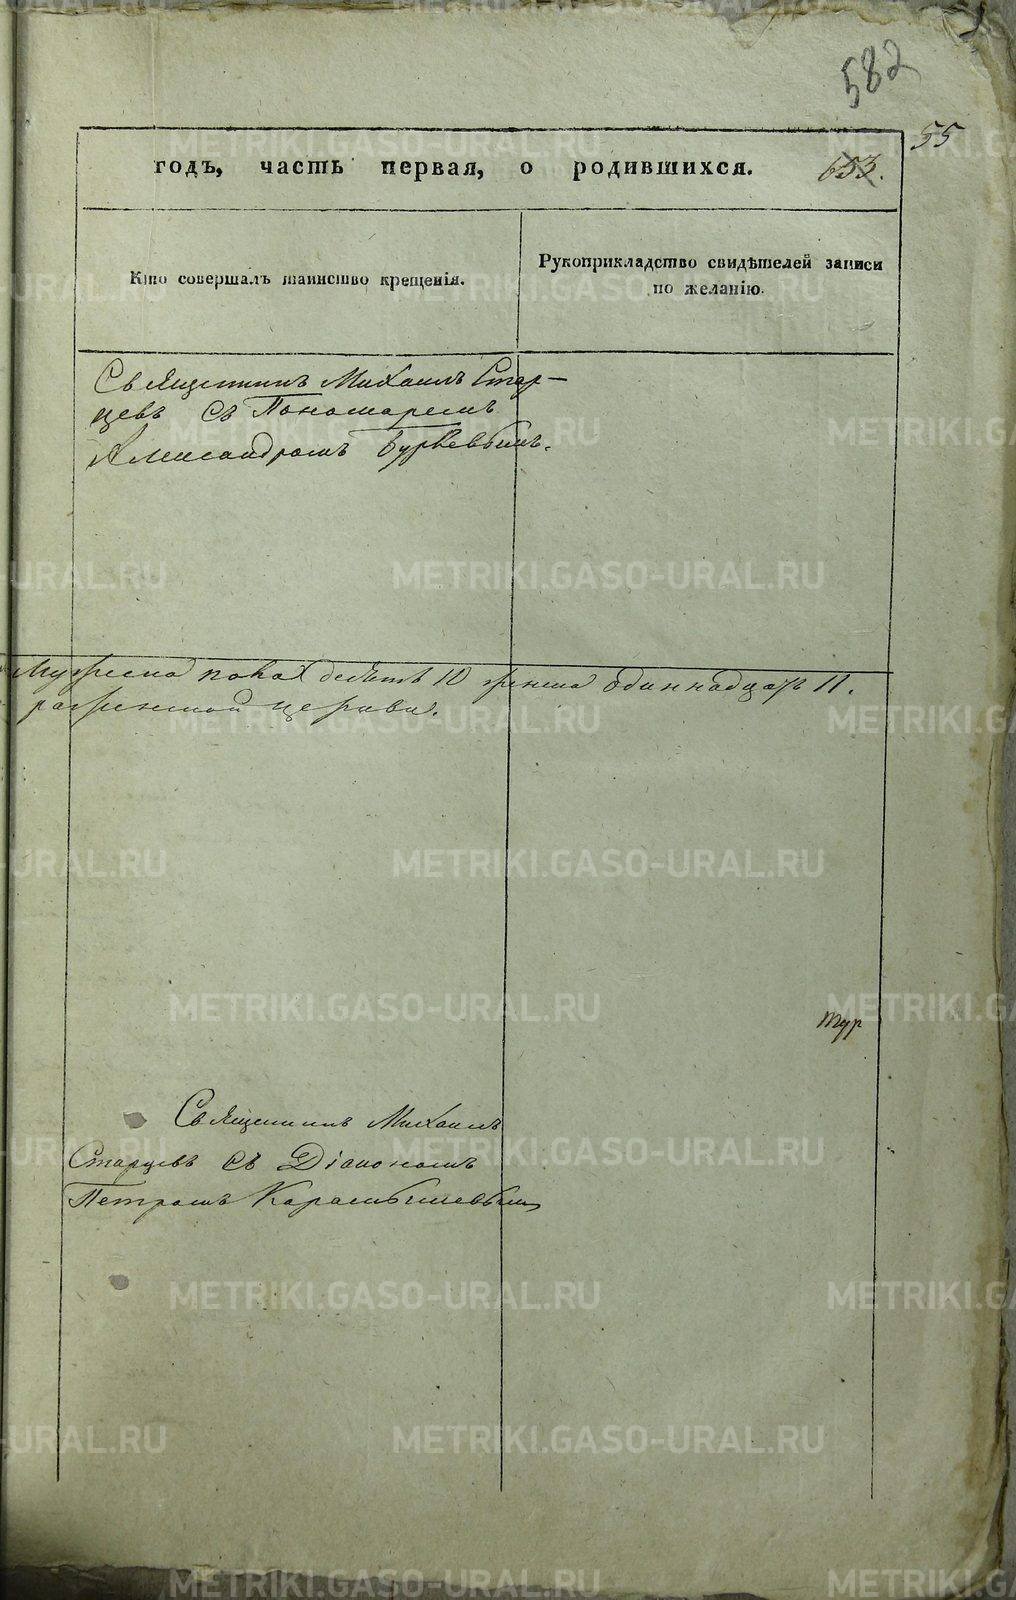 582
55
годъ, часть первая, о родившихся. 653.
Кто совершалъ таинство крещенія.
Рукоприкладство свидѣтелей записи
по желанію.
Священникъ Михаилъ Стар-
цевъ съ Пономаремъ
Александромъ
Мужеска пола десять 10 женска одиннадцать 11.
церкви.
тур
Священникъ Михаилъ
Старцевъ съ Діакономъ
Петромъ Карамышевымъ
METRIKI.GASO-URAL.RU